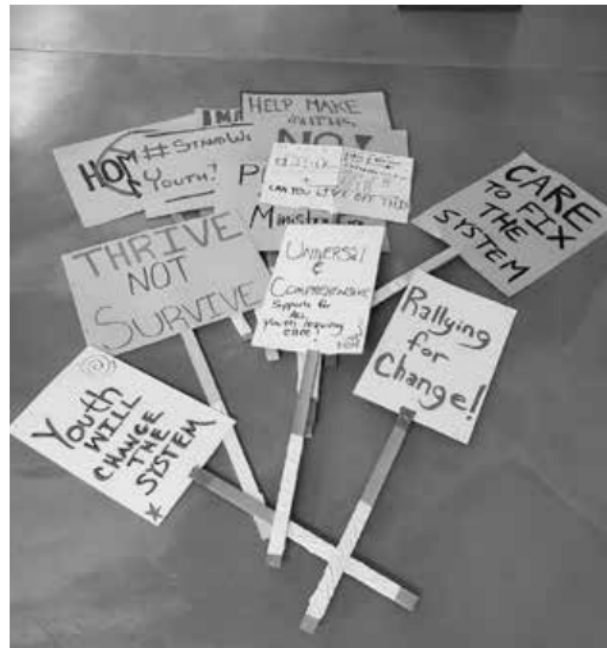 HELP MAKE
NO
HOM
#STAND W
YOUTH
CAN YOU LIVE OFF THIS
CARE
TO FIX
THE
SYSTEM
THRIVE
NOT
SURVIVE
UNIVERSAL
&
COMPREHENSIVE
Supports for
ALL
Youth leaving
care!
Rallying
for
Change!
YOUTH
WILL
CHANGE
THE
SYSTEM